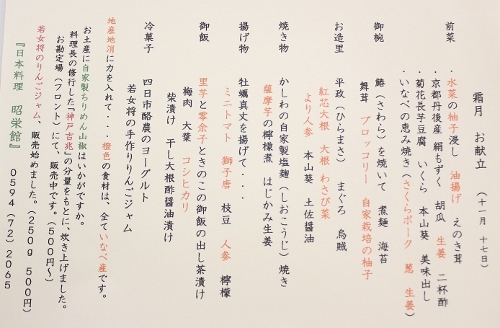 霜月 お献立 (十一月 十七日)
前菜 ・水菜の柚子浸し 油揚げ えのき茸
・京都丹後産 絹もずく 胡瓜 生姜 二杯酢
・菊花長芋豆腐 いくら 本山葵 美味出し
・いなべの恵み焼き(さくらポーク 葱 生姜)
御椀 鰆(さわら)を焼いて 煮麺 海苔
舞茸 ブロッコリー 自家栽培の柚子
お造里 平政(ひらまさ) まぐろ 烏賊
紅芯大根 大根 わさび菜
より人参 本山葵 土佐醤油
焼き物 かしわの自家製塩麹(しおこうじ)焼き
薩摩芋の檸檬煮 はじかみ生姜
揚げ物 牡蠣真丈を揚げて・・・
ミニトマト 獅子唐 枝豆 人参 檸檬
御飯 里芋と零余子ときのこの御飯の出し茶漬け
梅肉 大葉 コシヒカリ
柴漬け 干し大根酢醤油漬け
冷菓子 四日市酪農のヨーグルト
若女将の手作りりんごジャム
地産地消に力を入れて・・・橙色の食材は、全ていなべ産です。
お土産に自家製ちりめん山椒はいかがですか。
料理長の修行した「神戸吉兆」の分量をもとに、炊き上げました。
お勘定場(フロント)にて、販売中です。(500円~)
若女将のりんごジャム、販売始めました。(250g 500円)
『日本料理 昭栄館』 0594(72)2065